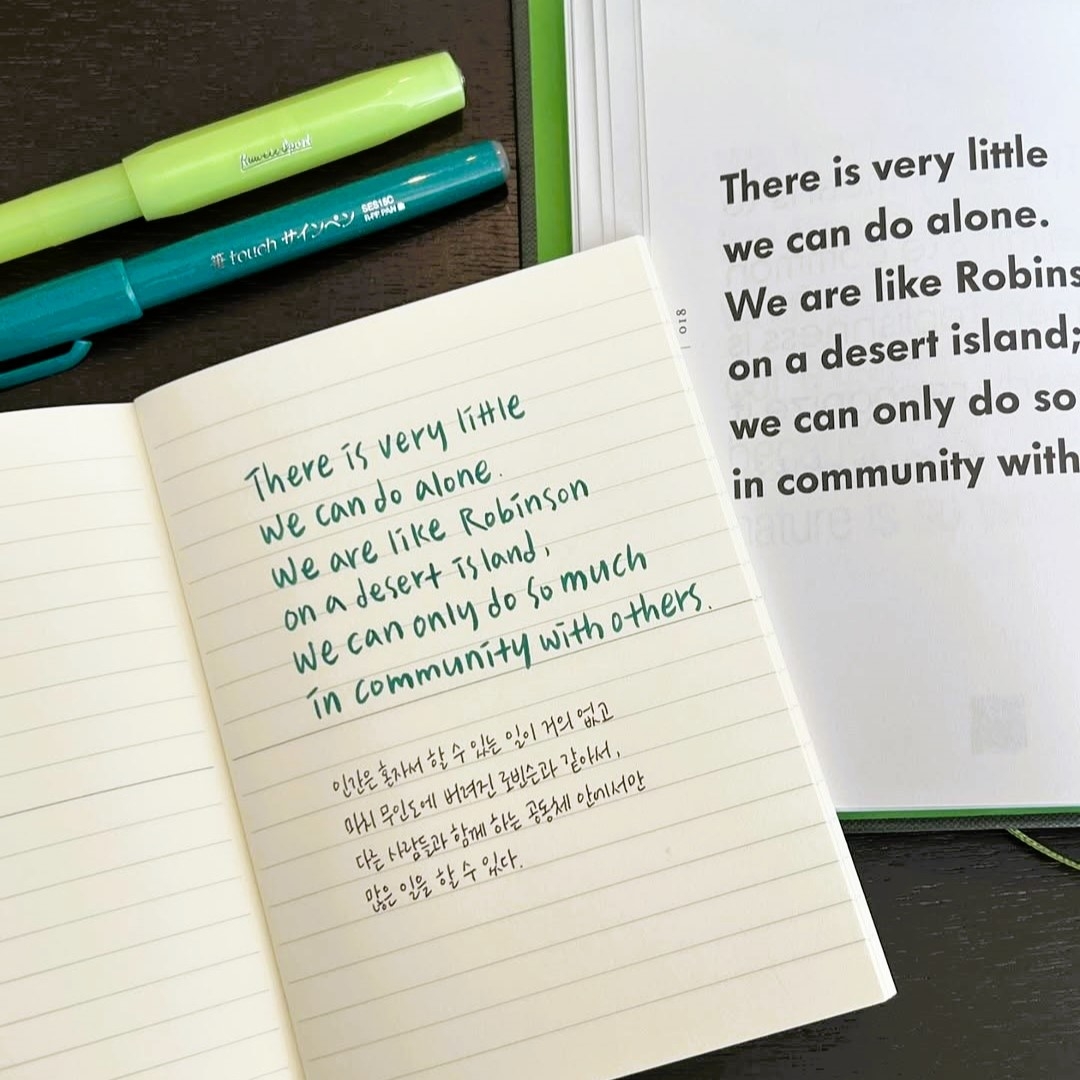 Kaweco Sport
touch サインペン
SES15C
There is very little
we can do alone.
We are like Robins
on a desert island;
we can only do so
in community with
018
There is very little
we can do alone.
We are like Robinson
on a desert island,
We can only do so much
in community with others.
인간은 혼자서 할 수 있는 일이 거의 없고
마치 무인도에 버려진 로빈슨과 같아서,
다른 사람들과 함께 하는 공동체 안에서만
많은 일을 할 수 있다.